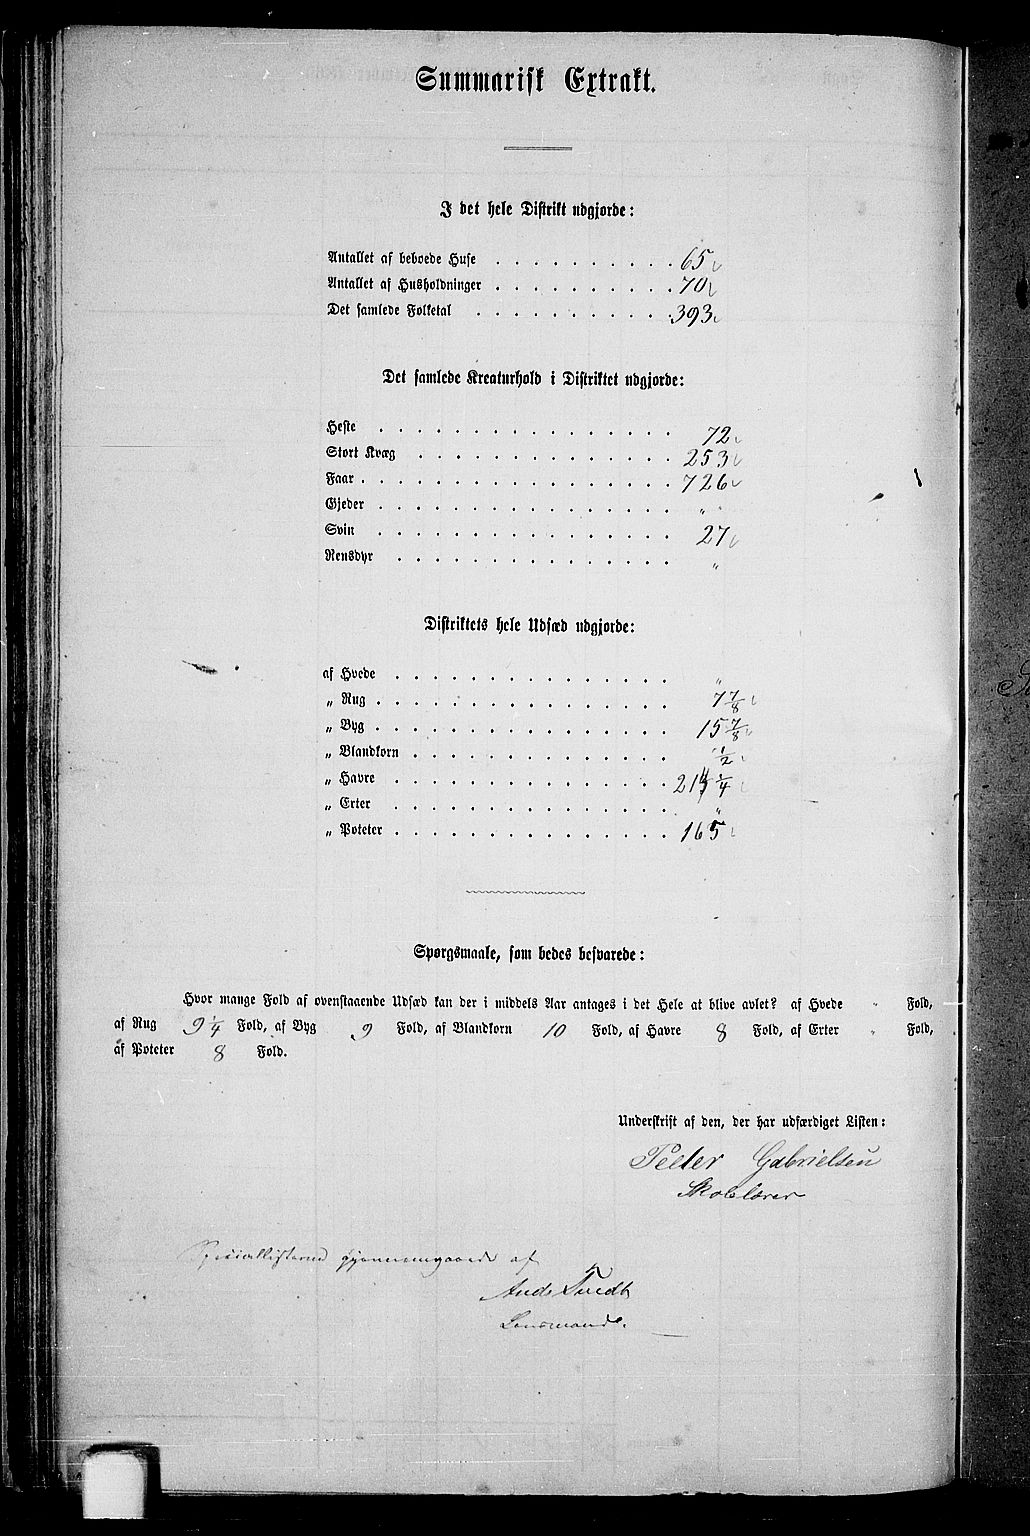 Summarisk Extrakt.
I det hele Distrikt udgjorde:
Antallet af beboede Huse . . . . . . . . . . 65
Antallet af Husholdninger . . . . . . . . . . 70
Det samlede Folketal . . . . . . . . . . . 393
Det samlede Kreaturhold i Distriktet udgjorde:
Heste . . . . . . . . . . . . . . . . 72
Stort Kvæg . . . . . . . . . . . . . . 253
Faar . . . . . . . . . . . . . . . . . 726
Gjeder . . . . . . . . . . . . . . . . "
Svin . . . . . . . . . . . . . . . . 27
Rensdyr . . . . . . . . . . . . . . . "
Distriktets hele Udsæd udgjorde:
af Hvede . . . . . . . . . . . . . . . "
„ Rug . . . . . . . . . . . . . . . . 7 7/8
„ Byg . . . . . . . . . . . . . . . . 15 7/8
„ Blandkorn . . . . . . . . . . . . . . 1/2
„ Havre . . . . . . . . . . . . . . . 1/4
„ Erter . . . . . . . . . . . . . . . "
„ Poteter . . . . . . . . . . . . . . . 165
Spørgsmaale, som bedes besvarede:
Hvor mange Fold af ovenstaaende Udsæd kan der i middels Aar antages i det Hele at blive avlet? af Hvede " Fold,
af Rug 9 1/4 Fold, af Byg 9 Fold, af Blandkorn 10 Fold, af Havre 8 Fold, af Erter " Fold,
af Poteter 8 Fold.
Underskrift af den, der har udfærdiget Listen:
Peeter Gabrielsen
Skolelærer
Speciallisterne gjennemgaaede af
Lensmand.